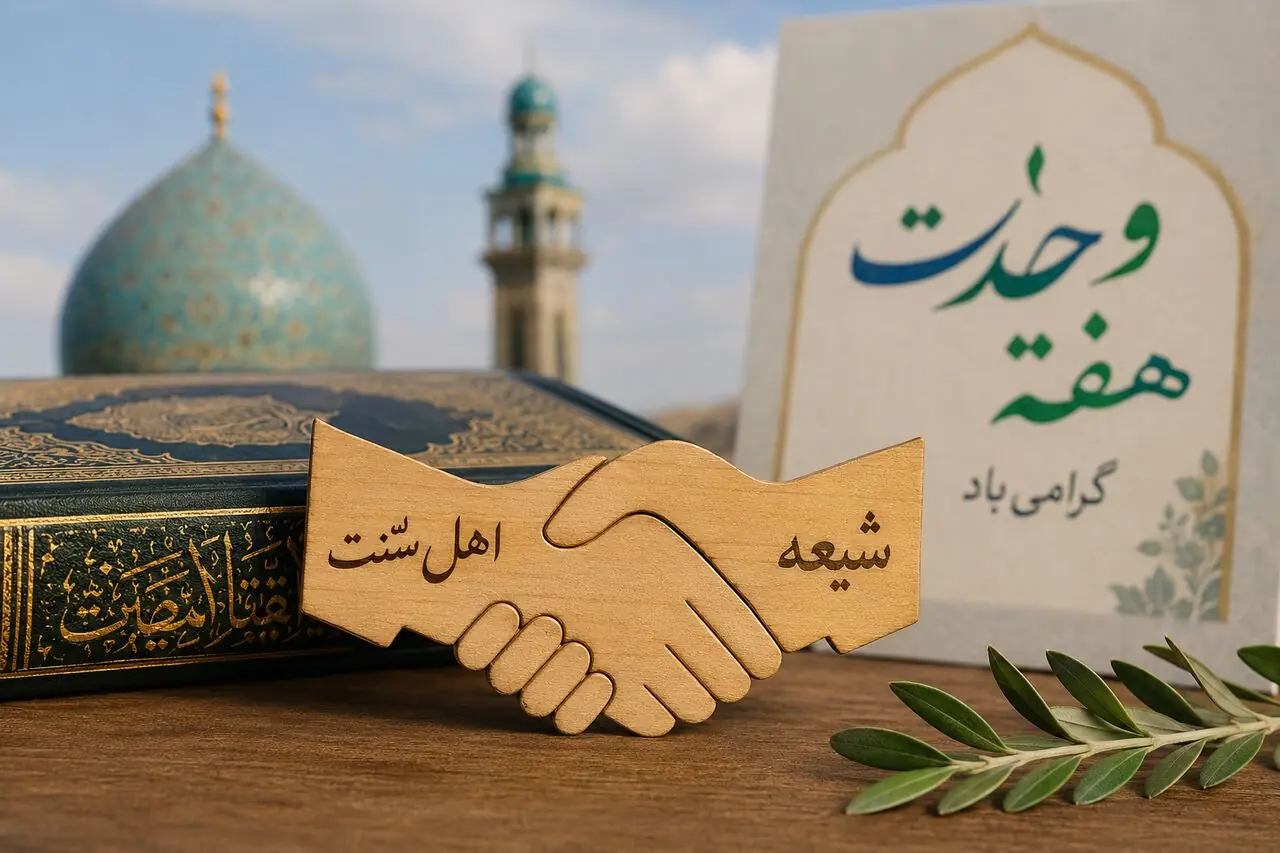 وحدت
هفته
گرامی باد
اهل سنّت
شیعه